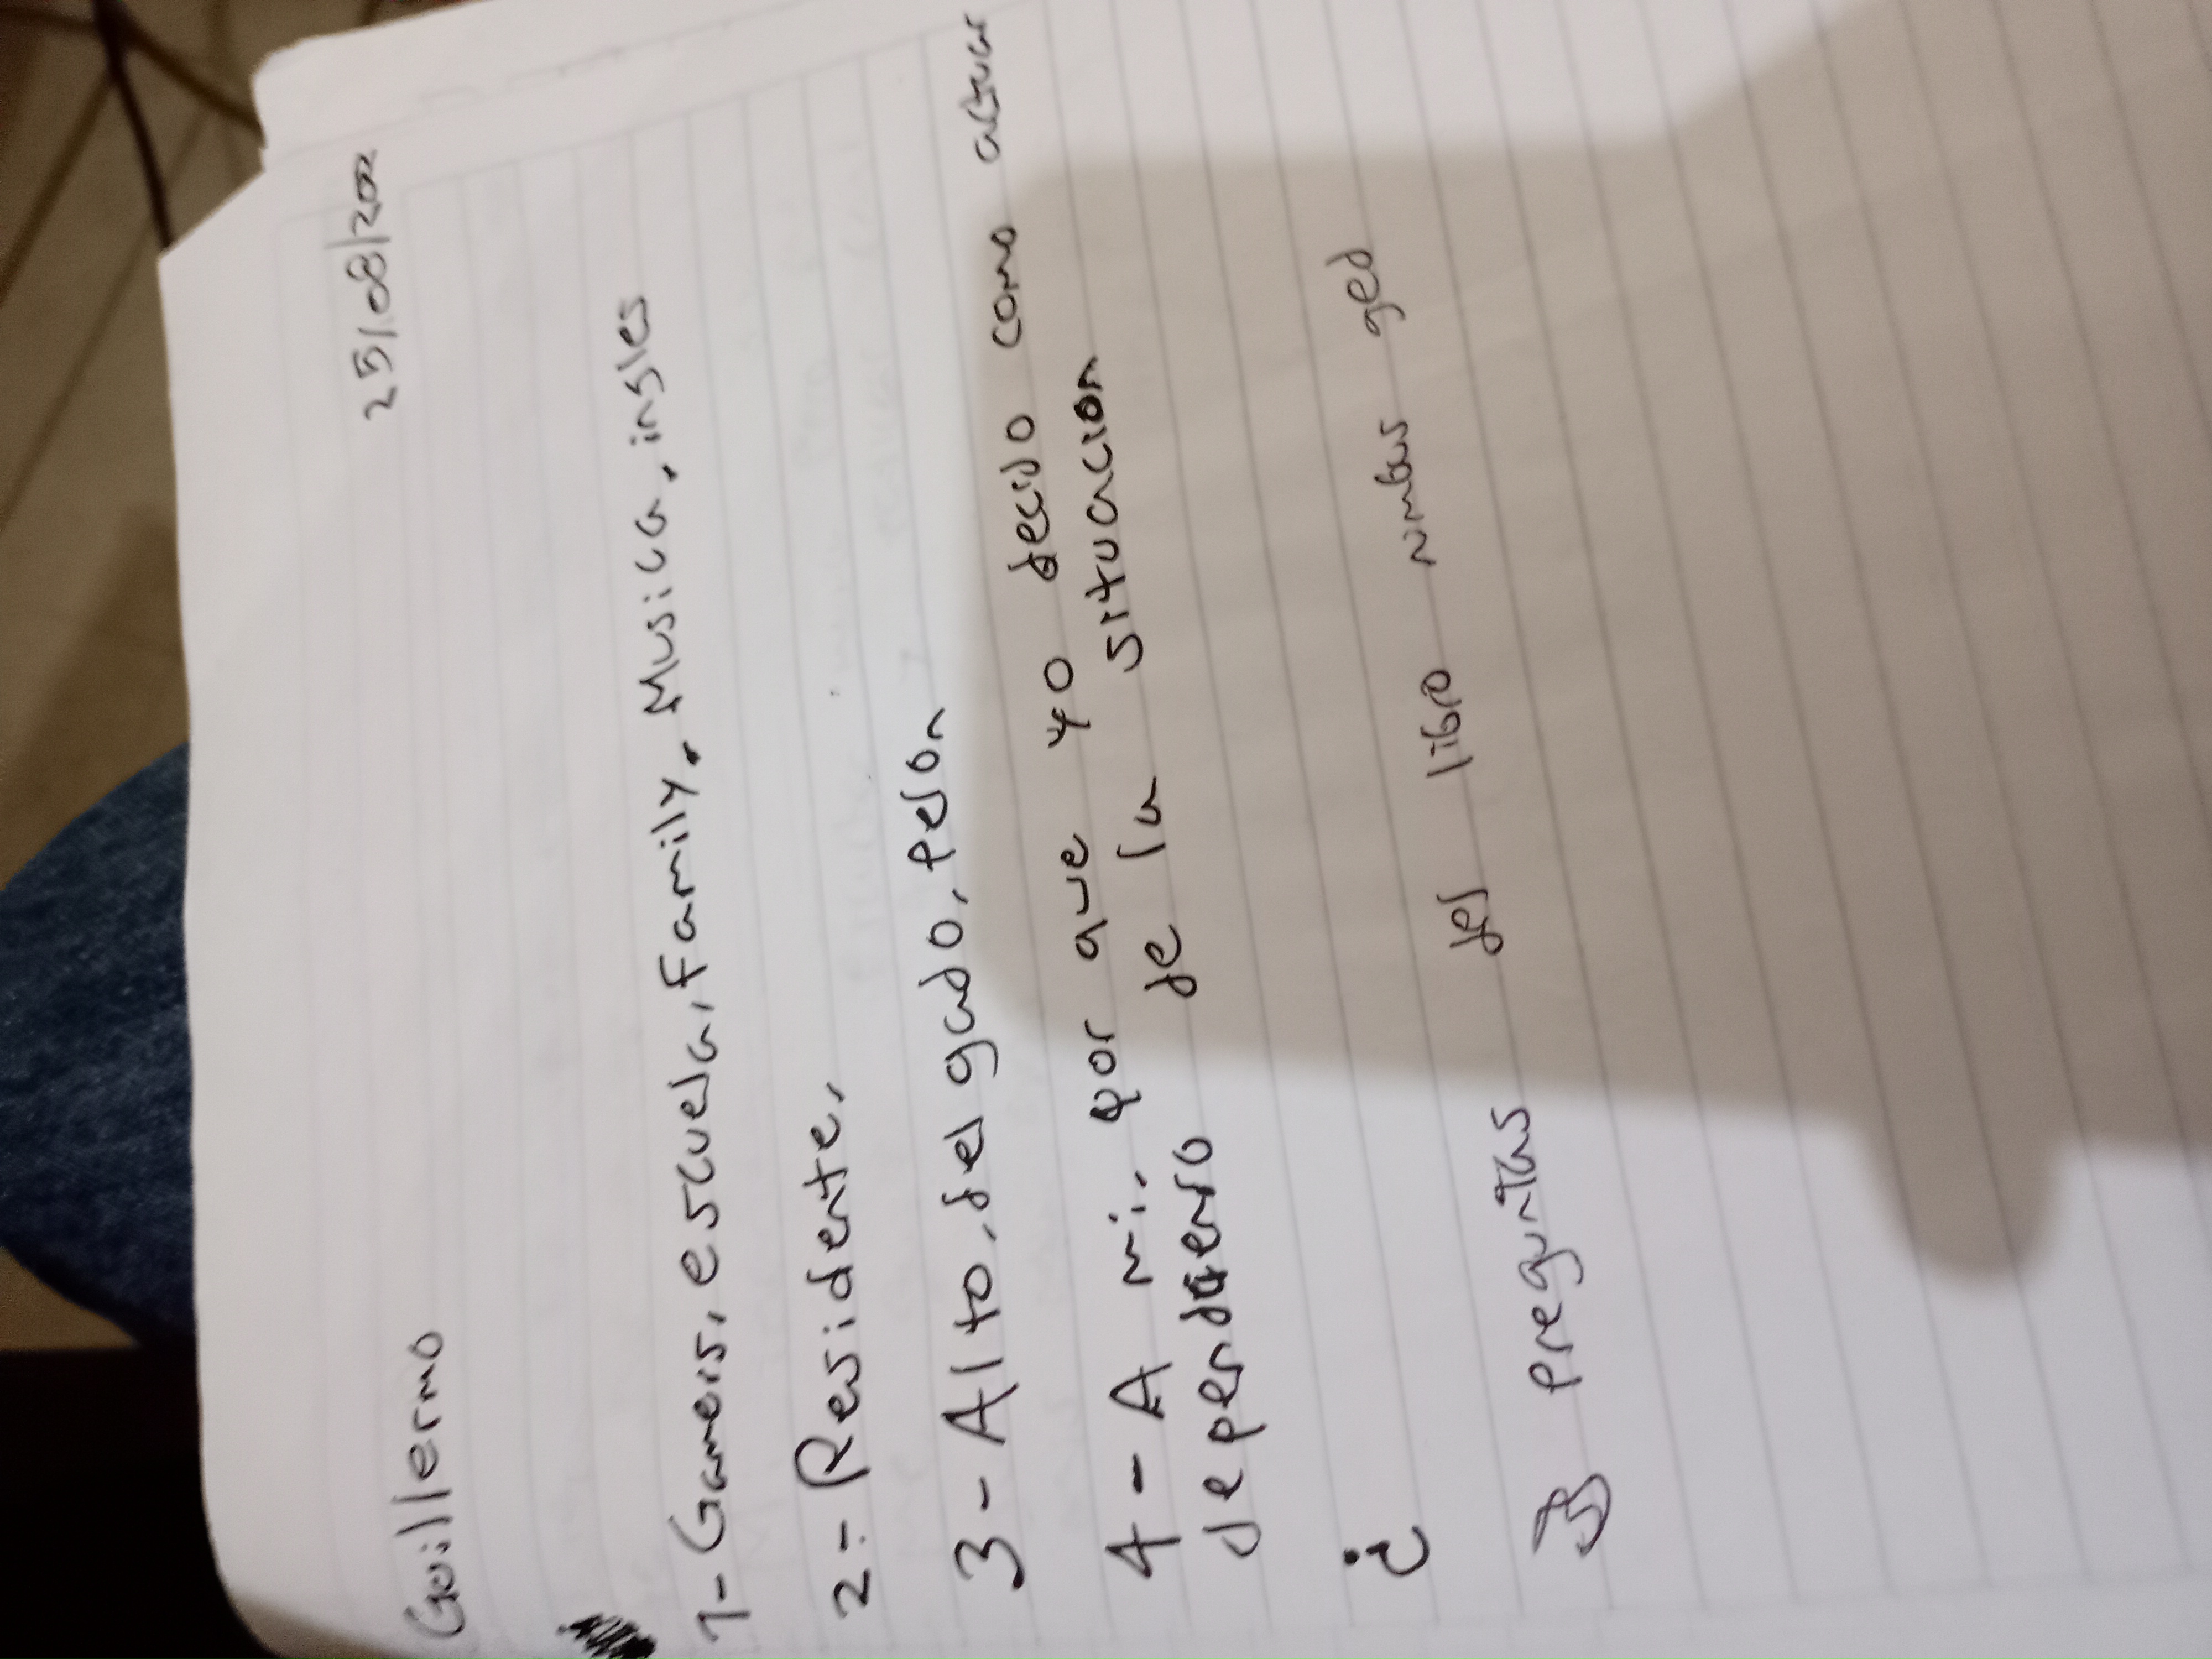 Guillermo 25/08/200
1- Gamers, escuela, Family, Musica, ingles
2- Residente,
3- Alto, delgado, Pelon
4- A mi, por que yo decido como actuar
dependiendo de la situacion
¿
preguntas del libro nimbus ged